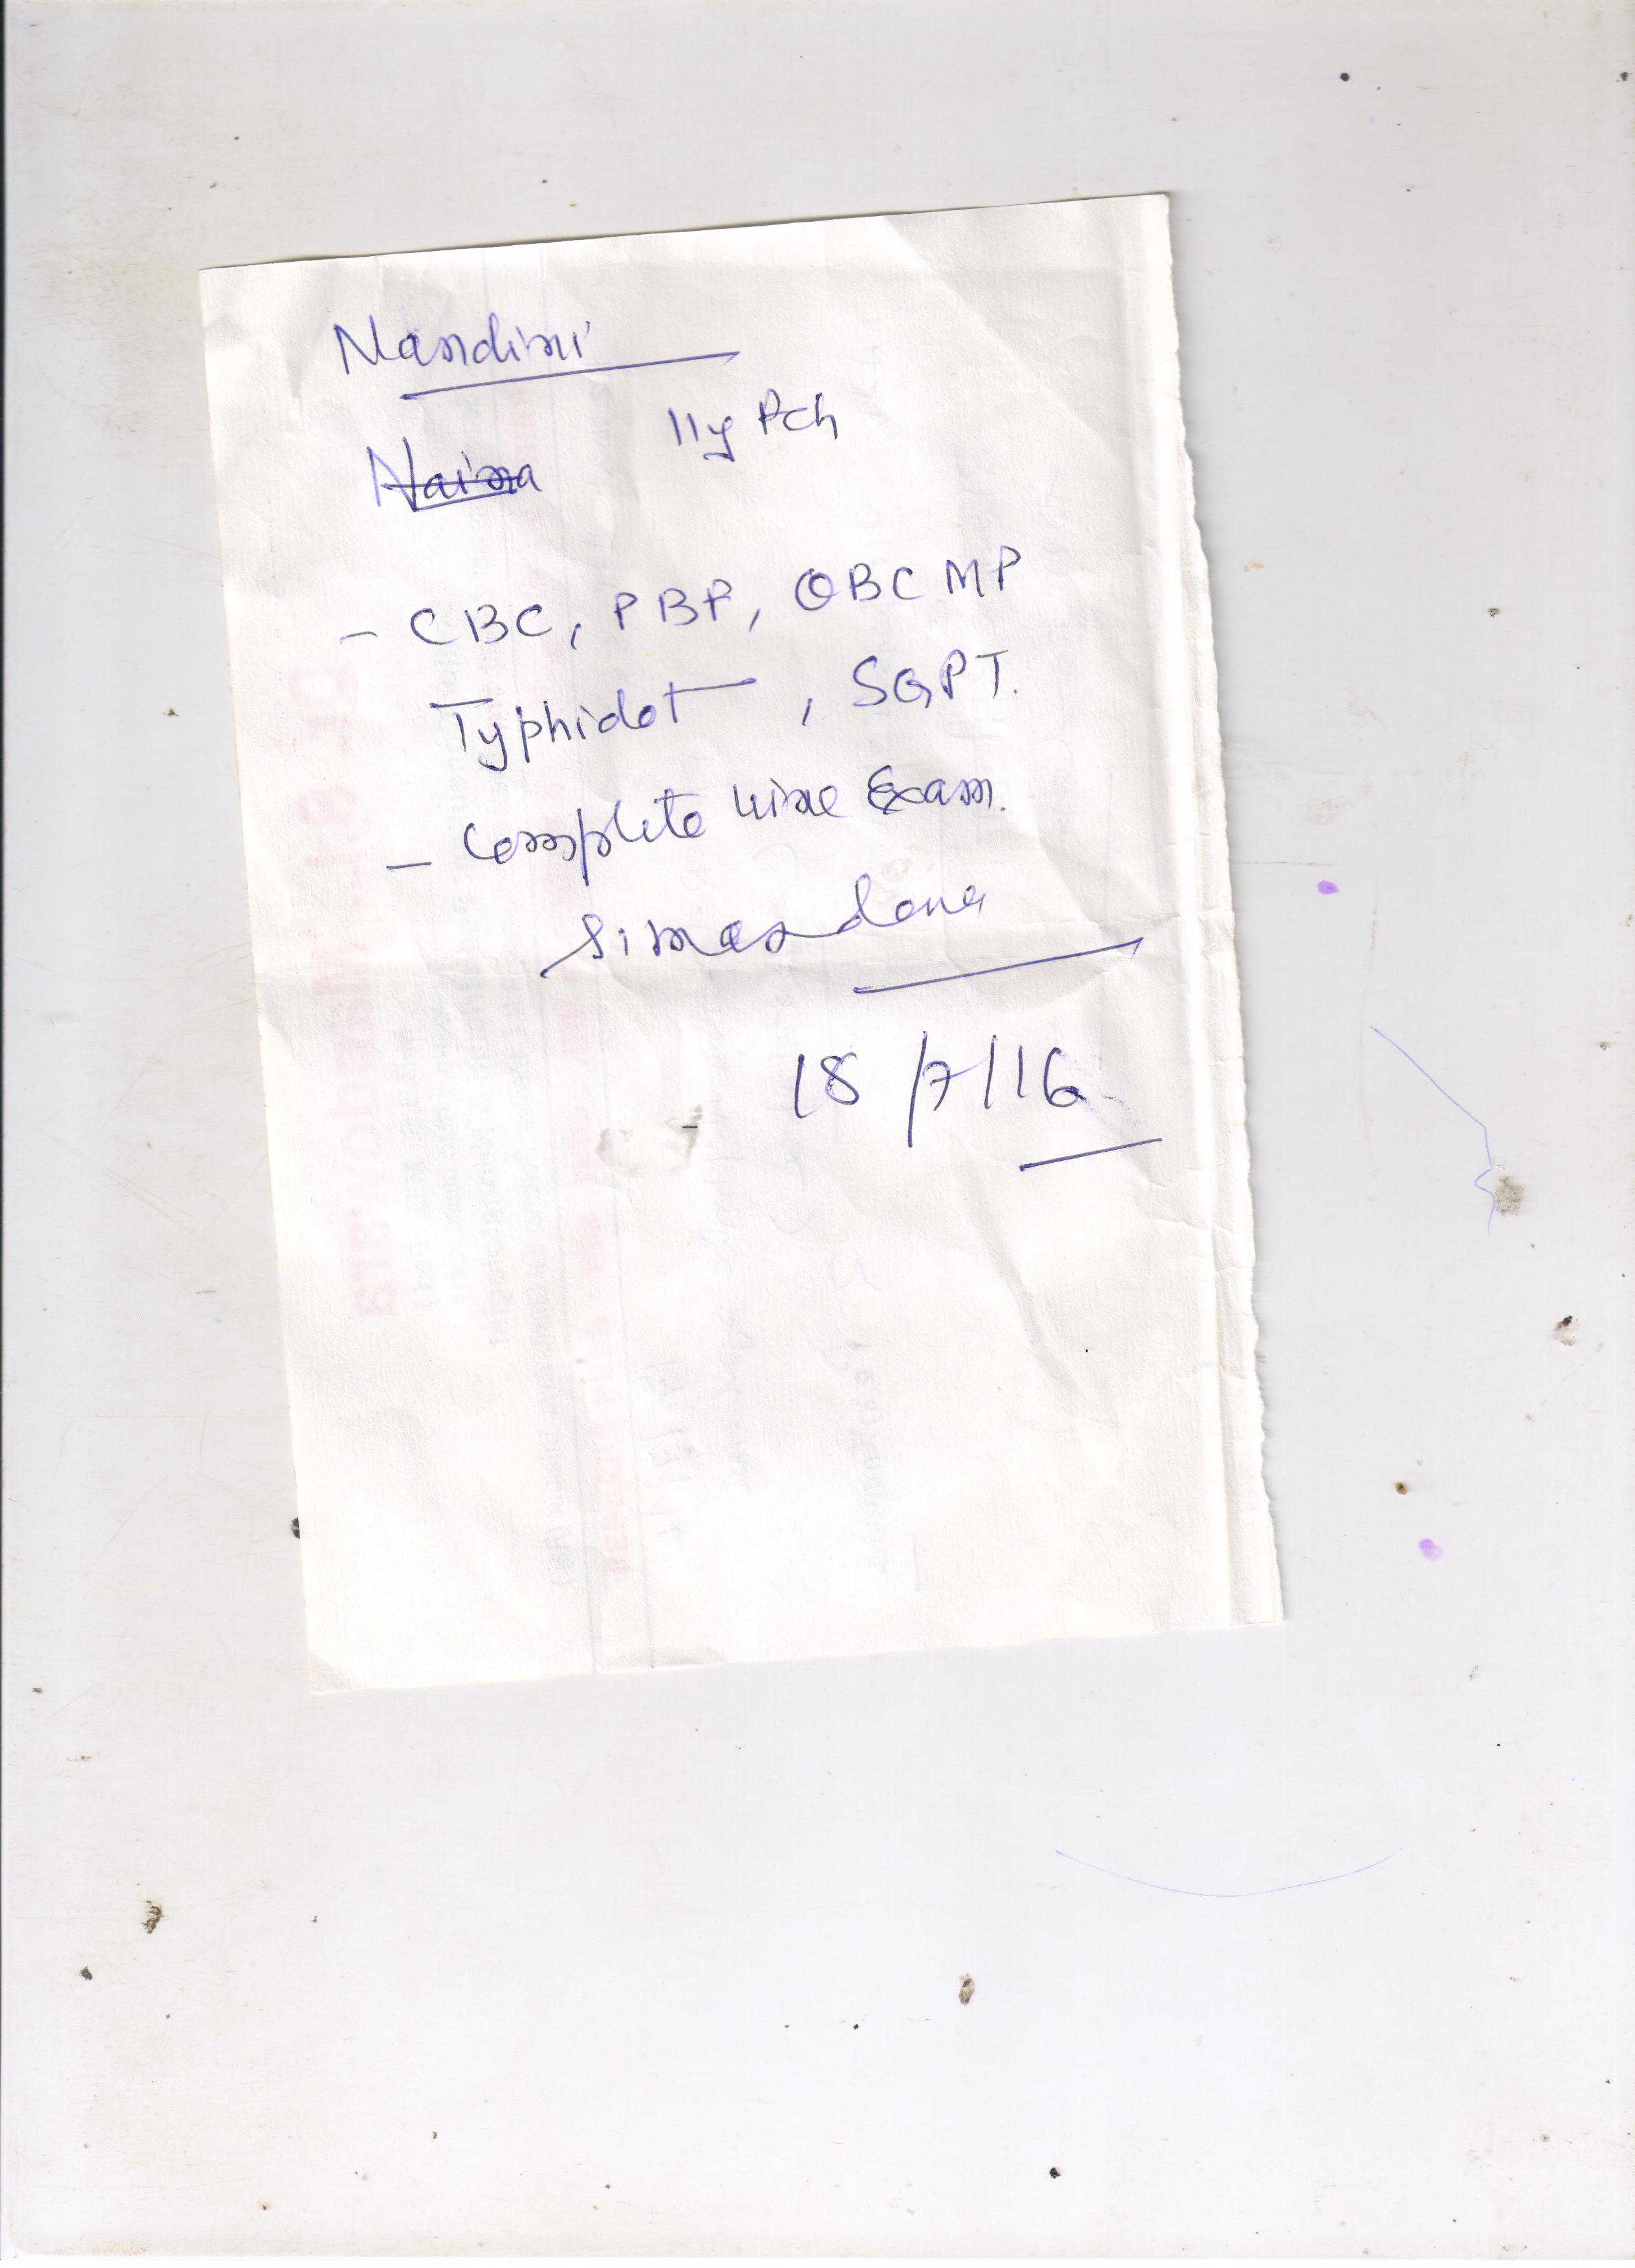 Nandini
11y Pch
Naina
- CBC, PBF, QBC MP
Typhidot, SGPT.
- Complete Urine Exam.
18/7/16